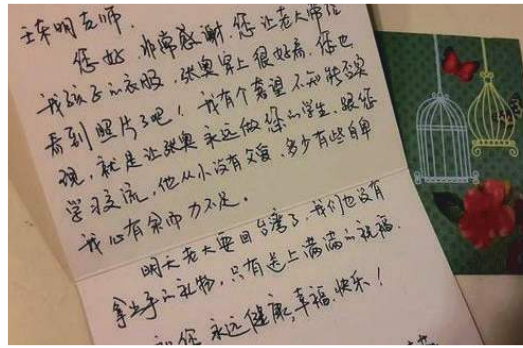 宋明老师:
您好,非常感谢,您让老大带给
我孩子的衣服,张奥穿上很好看,您也
看到照片了吧!我有个奢望不知能否实
现,就是让张奥永远做您的学生,跟您
学习交流,他从小没有父爱,多少有些自卑
我心有余而力不足。
明天老大要回台湾了,我们也没有
拿出手的礼物,只有送上满满的祝福.
祝您永远健康,幸福,快乐!